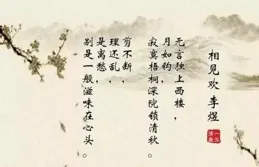 相見欢 李煜
无言独上西楼，
月如钩，
寂寞梧桐深院锁清秋。
剪不断，
理还乱，
是离愁，
别是一般滋味在心头。